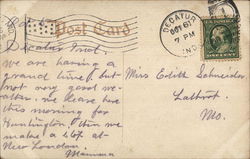 Post Card
DECATUR
OCT 6
7 PM
IND.
Decatur Ind.
We are having a
grand time, but
not very good we-
ather. We leave here
this morning for
Huntington. Then we
make a stop at
New London.
Mamma
Miss Edith Schneider
Lathrop
Mo.